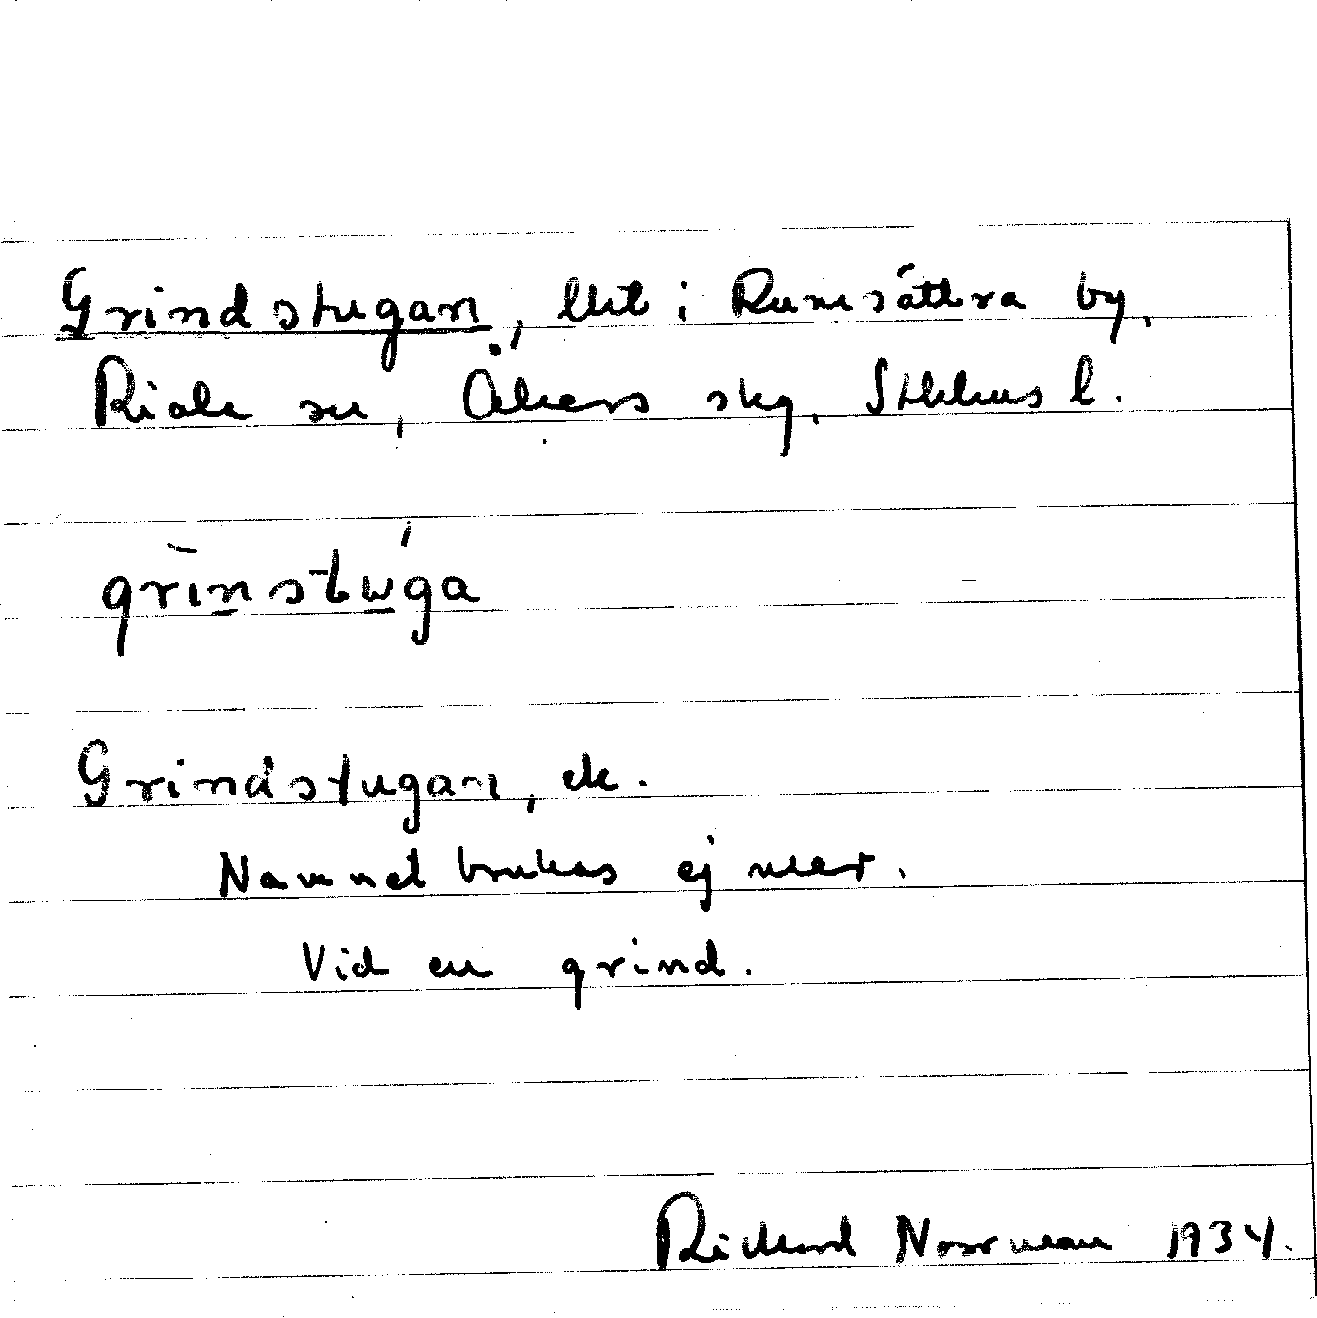 Grindstugan, lht i Rumsättra by,
Riala sn, Åkers skg, Sthlms l.
grinstuga
Grindstugan, ek.
Namnet brukas ej mer.
Vid en grind.
Richard Norrman 1934.